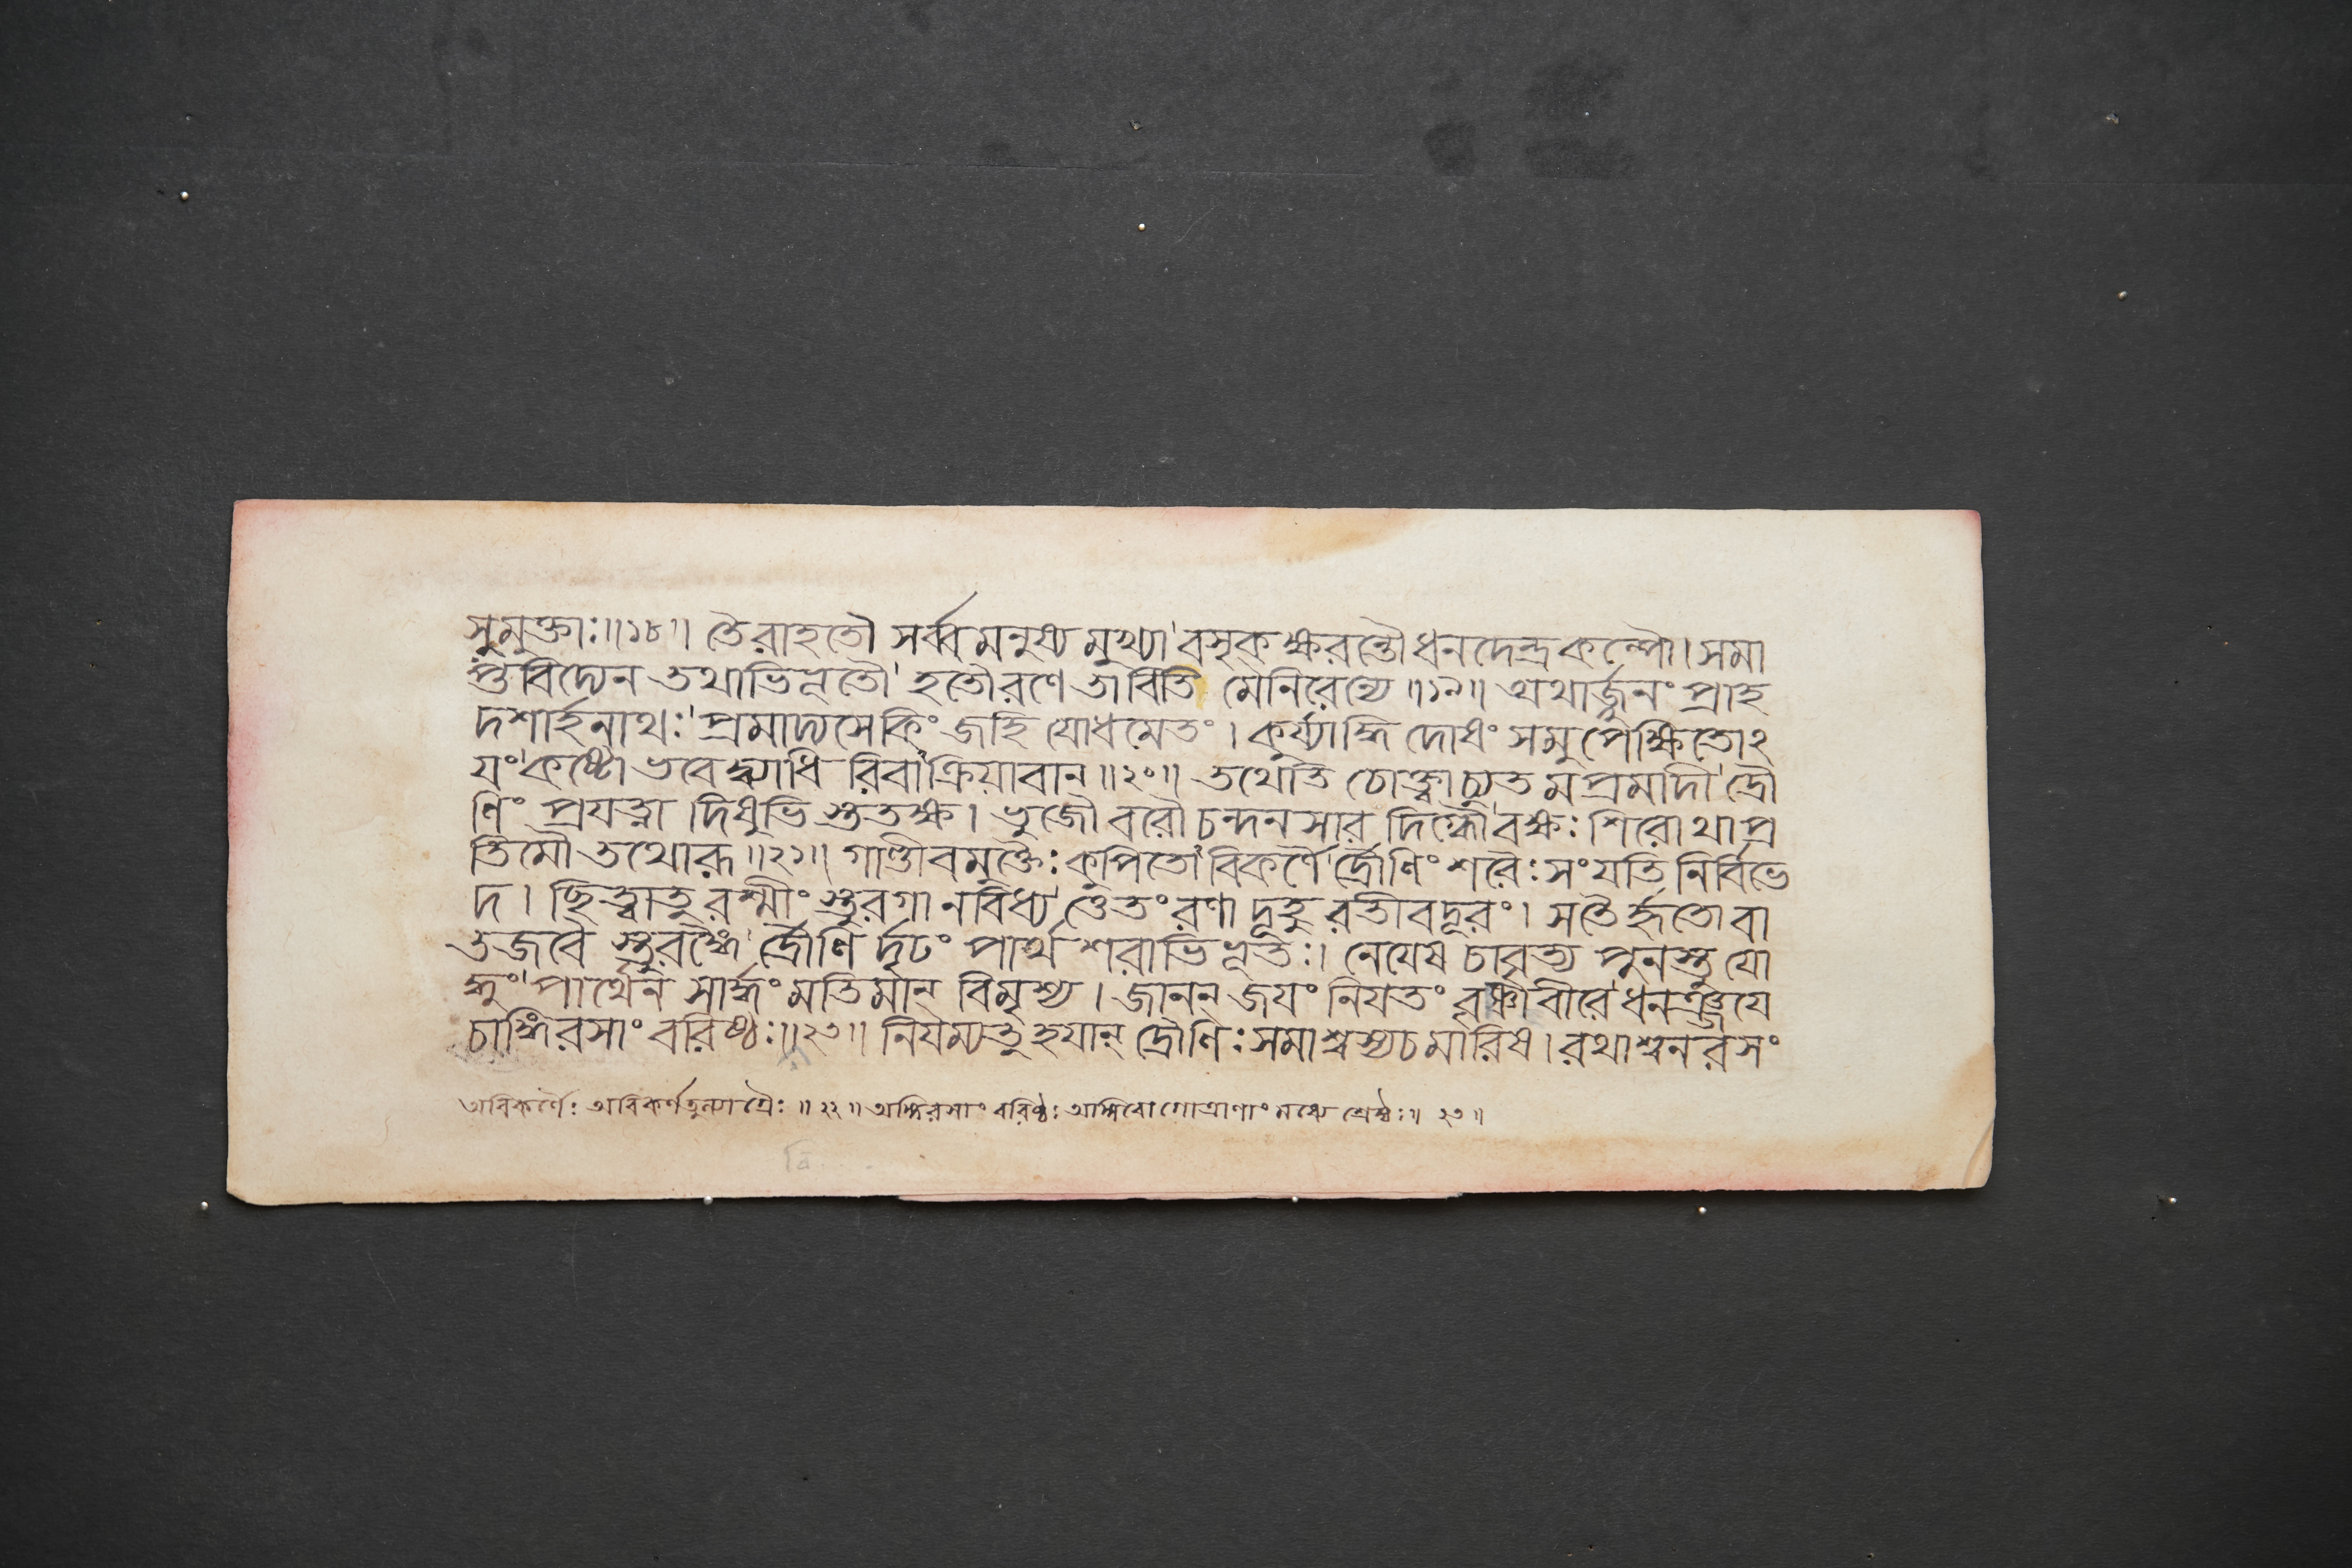 সুমুক্তাঃ॥১৮॥ তৈরাহতৌ সর্ব্বমনুষ্য মুখ্যা'বসৃকক্ষরন্তৌধনদেন্দ্রকল্পৌ। সমা
প্তবিদ্যেন তথাভিভূতৌ' হতৌরণে তাবিতি মেনিরেন্যে॥১৯॥ অথার্জ্জুনং প্রাহ
দশার্হনাথঃ'প্রমাদ্যসেকিং জহি যোধমেতং। কুর্য্যাদ্ধি দোষং সমুপেক্ষিতোঽ
যং'কষ্টো ভবেদ্ব্যাধি রিবা'ক্রিয়াবান্॥২০॥ তথেতি চোক্ত্বাচ্যুত মপ্রমাদী'দ্রৌ
ণিং প্রযত্না দিষুভি স্ততক্ষ। ভুজৌ বরৌ চন্দনসার দিগ্ধৌ'বক্ষঃ শিরো থাপ্র
তিমৌ তথোরূ॥২১॥ গাণ্ডীবমুক্তৈঃ কুপিতো'বিকর্ণৈ'র্দ্রৌণিং শরৈঃ সংযতি নির্বিভে
দ। ছিত্ত্বাতু রশ্মীং স্তুরগা নবিধ্য'ত্তেতং রণা দূহু রতীবদূরং। সতৈ র্হৃতো বা
তজবৈ স্তুরঙ্গৈ'র্দ্রৌণি র্দৃঢং পার্থ শরাভিভূতঃ। নেযেষ চাবৃত্য পুনস্তু যো
দ্ধুং'পার্থেন সার্দ্ধং মতিমান্ বিমৃশ্য। জানন্ জযং নিযতং বৃষ্ণিবীরে'ধনঞ্জযে
চাঙ্গিরসাং বরিষ্ঠঃ॥২৩॥ নিযম্যতু হযান্ দ্রৌণিঃ সমাশ্বস্যচমারিষ। রথাশ্বনরসং
অবিকর্ণৈঃ অবিকর্ণতুল্যাগ্রৈঃ॥২২॥ অঙ্গিরসাং বরিষ্ঠঃ অঙ্গিরোগোত্রাণাং মধ্যে শ্রেষ্ঠঃ॥ ২৩॥